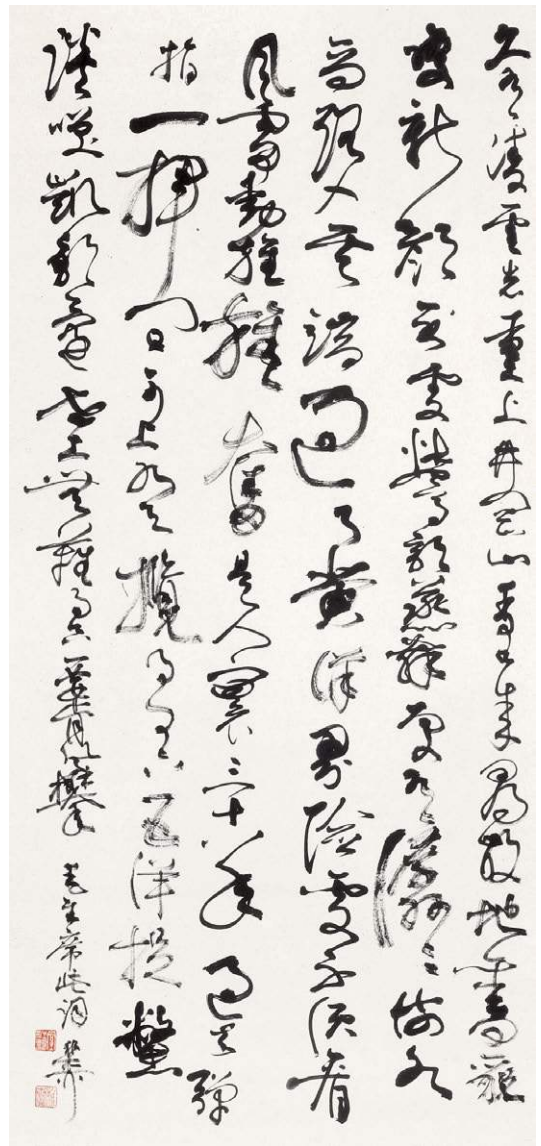 久有凌雲志重上井岡山千里來尋故地舊貌
變新顏到處鶯歌燕舞更有潺々流水
高路入雲端過了黃洋界險處不須看
風雷動旌旗奮是人寰三十八年過去彈
指一揮間可上九天攬月可下五洋捉鱉
談笑凱歌還世上無難事只要肯登攀
毛主席此詞